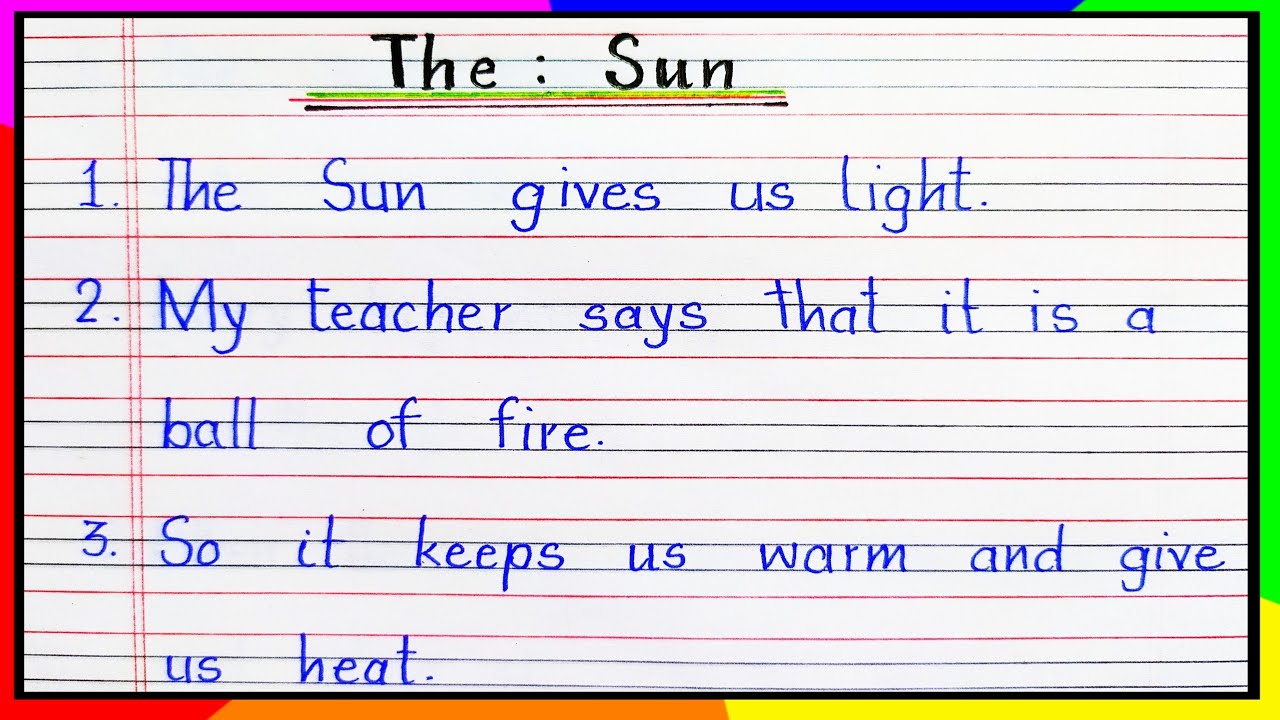 The : Sun
1. The Sun gives us light.
2. My teacher says that it is a
ball of fire.
3. So it keeps us warm and give
us heat.